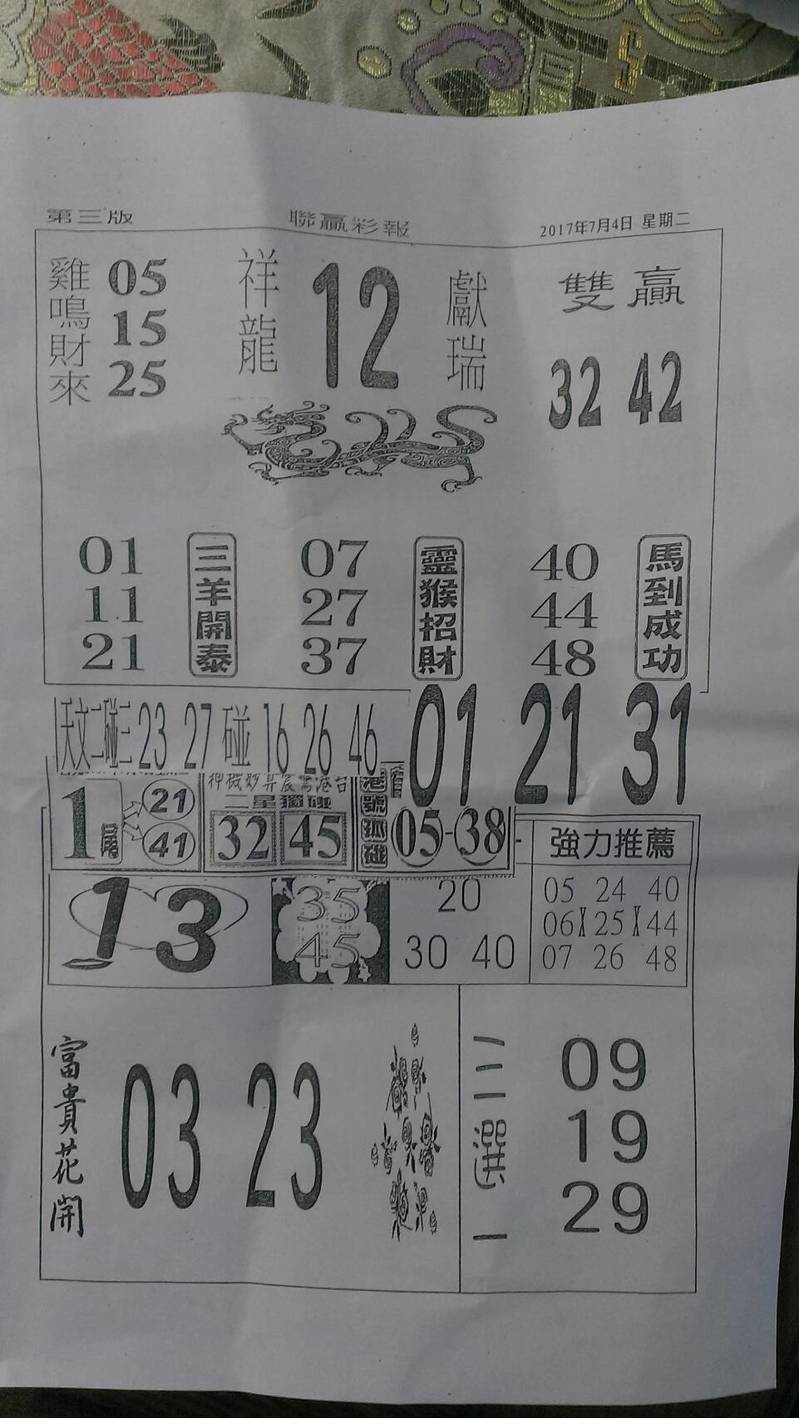 第三版 聯贏彩報 2017年7月4日 星期二
雞鳴財來
05
15
25
祥龍
12
獻瑞
雙贏
32 42
01
11
21
三羊開泰
07
27
37
靈猴招財
40
44
48
馬到成功
天文二碰三 23 27 碰 16 26 46
01 21 31
1尾
21
41
二星獨碰
32 45
港號孤碰
05-38
強力推薦
05 24 40
06 25 44
07 26 48
13
35
45
20
30 40
富貴花開
03 23
三選一
09
19
29